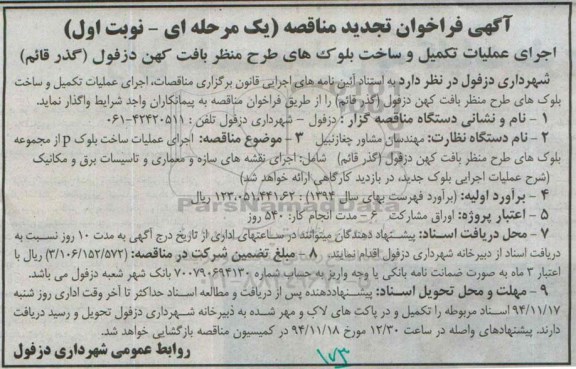 آگهی فراخوان تجدید مناقصه (یک مرحله ای - نوبت اول)
اجرای عملیات تکمیل و ساخت بلوک های طرح منظر بافت کهن دزفول (گذر قائم)
شهرداری دزفول در نظر دارد به استناد آئین نامه های اجرایی قانون برگزاری مناقصات، اجرای عملیات تکمیل و ساخت
بلوک های طرح منظر بافت کهن دزفول (گذر قائم) را از طریق فراخوان مناقصه به پیمانکاران واجد شرایط واگذار نماید.
۱ - نام و نشانی دستگاه مناقصه گزار : دزفول - شهرداری دزفول تلفن : ۴۲۴۲۰۵۱۱-۰۶۱
۲ - نام دستگاه نظارت: مهندسان مشاور چغازنبیل ۳ - موضوع مناقصه: اجرای عملیات ساخت بلوک p از مجموعه
بلوک های طرح منظر بافت کهن دزفول (گذر قائم) شامل: اجرای نقشه های سازه و معماری و تاسیسات برق و مکانیک
(شرح عملیات اجرایی بلوک جدید، در بازدید کارگاهی ارائه خواهد شد)
۴ - برآورد اولیه: (برآورد فهرست بهای سال ۱۳۹۴) ۱۲۳،۰۵۱،۴۴۱،۶۲ ریال
۵ - اعتبار پروژه: اوراق مشارکت ۶ - مدت انجام کار: ۵۴۰ روز
۷ - محل دریافت اسناد: پیشنهاد دهندگان میتوانند در ساعتهای اداری از تاریخ درج آگهی به مدت ۱۰ روز نسبت به
دریافت اسناد از دبیرخانه شهرداری دزفول اقدام نمایند. ۸ - مبلغ تضمین شرکت در مناقصه: (۳/۱۰۶/۱۵۲/۵۷۲) ریال با
اعتبار ۳ ماه به صورت ضمانت نامه بانکی یا وجه واریز به حساب شماره ۷۰۰۷۹۰۶۹۴۱۳۰ بانک شهر شعبه دزفول می باشد.
۹ - مهلت و محل تحویل اسناد: پیشنهاددهنده پس از دریافت و مطالعه اسناد حداکثر تا آخر وقت اداری روز شنبه
۹۴/۱۱/۱۷ اسناد مربوطه را تکمیل و در پاکت های لاک و مهر شده به دبیرخانه شهرداری دزفول تحویل و رسید دریافت
دارند. پیشنهادهای واصله در ساعت ۱۲/۳۰ مورخ ۹۴/۱۱/۱۸ در کمیسیون مناقصه بازگشایی خواهد شد.
روابط عمومی شهرداری دزفول
۱۷۳
ParsNamadData